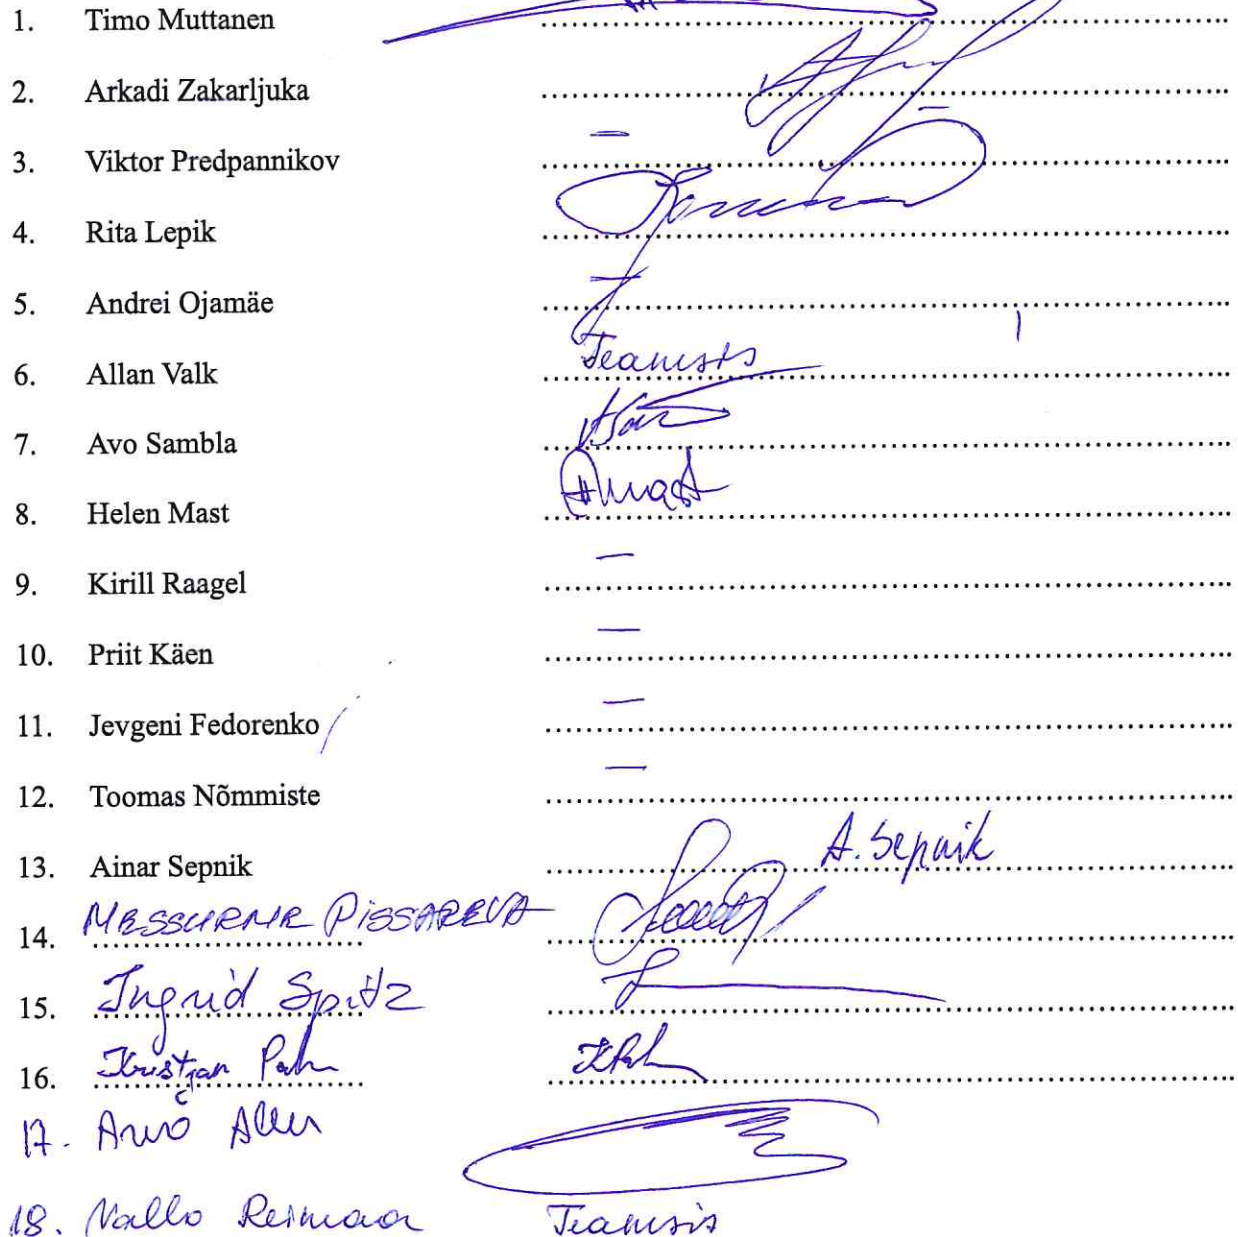 1. Timo Muttanen
2. Arkadi Zakarljuka
3. Viktor Predpannikov –
4. Rita Lepik
5. Andrei Ojamäe
6. Allan Valk Teamsis
7. Avo Sambla
8. Helen Mast HMast
9. Kirill Raagel –
10. Priit Käen –
11. Jevgeni Fedorenko –
12. Toomas Nõmmiste –
13. Ainar Sepnik A. Sepnik
14. PISSAREVA
15. Ingrid Spitz
16. Kristjan
17. Arvo Aller
18. Vallo Reimaa Teamsis